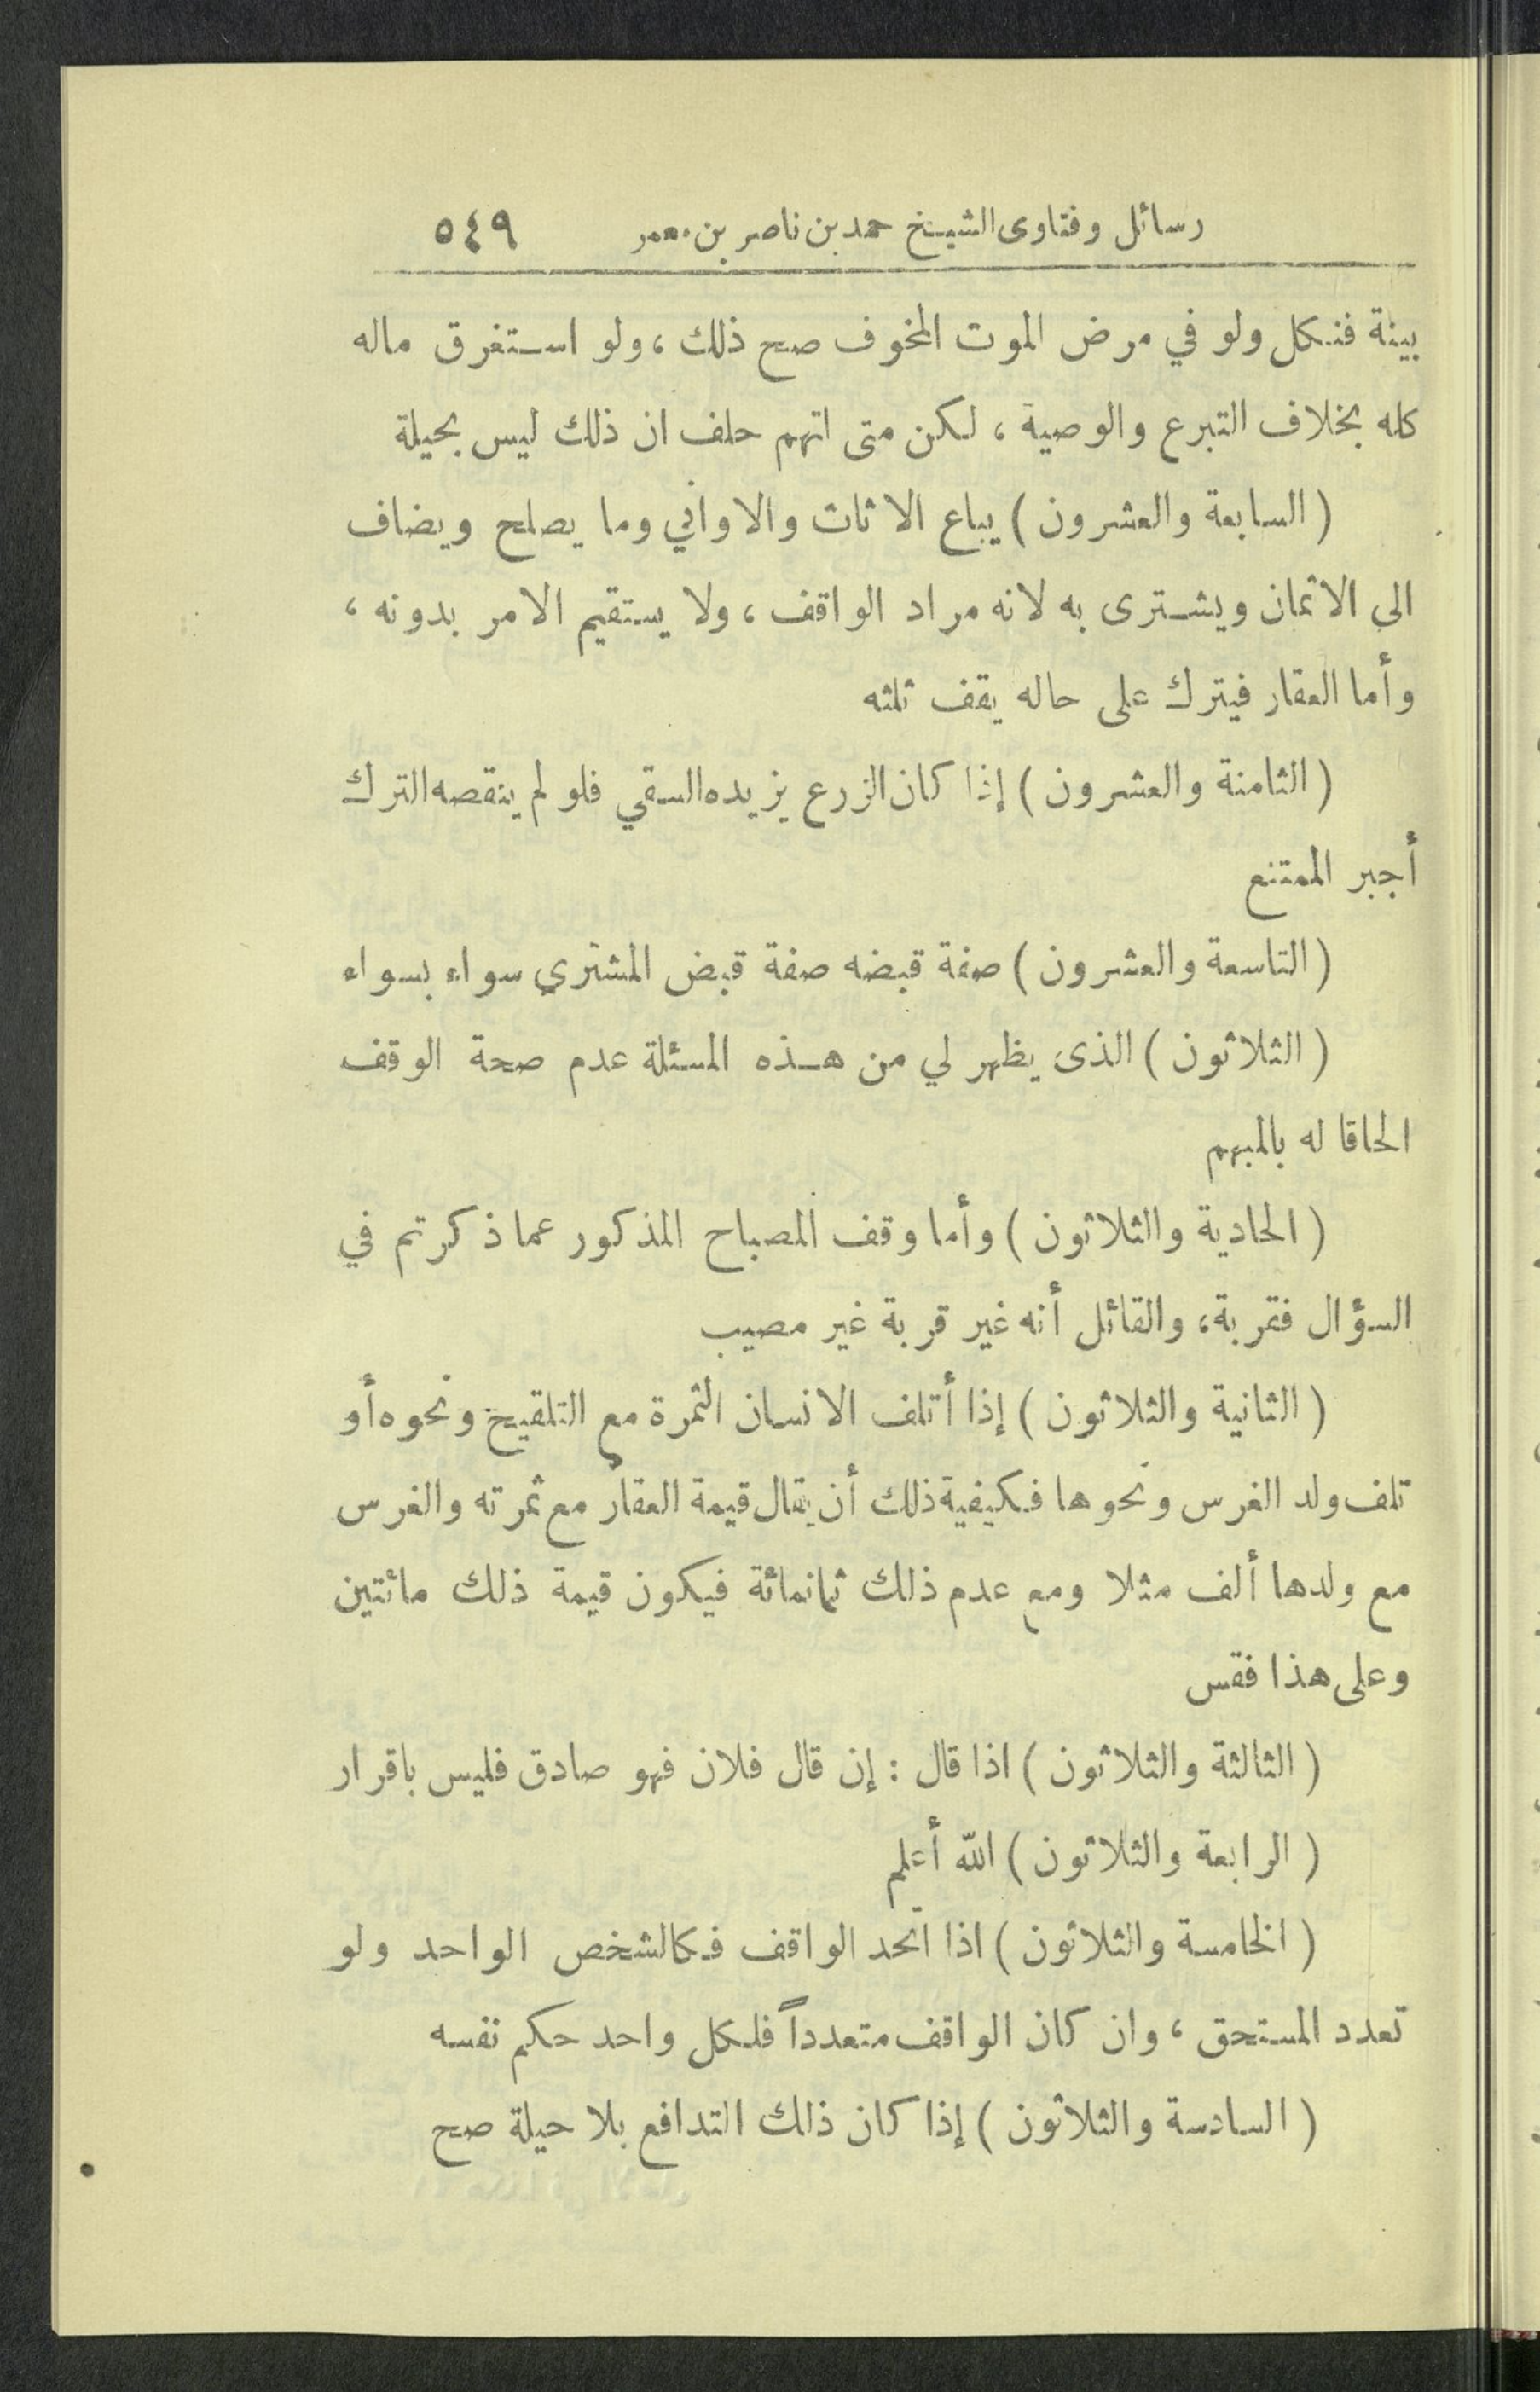 رسائل وفتاوى الشيخ حمد بن ناصر بن معمر ٥٤٩
بينة فنكل ولو في مرض الموت المخوف صح ذلك ، ولو استغرق ماله
كله بخلاف التبرع والوصية ، لكن متى اتهم حلف ان ذلك ليس بحيلة
( السابعة والعشرون ) يباع الاثاث والاواني وما يصلح ويضاف
الى الاثمان ويشترى به لانه مراد الواقف ، ولا يستقيم الامر بدونه ،
وأما العقار فيترك على حاله يقف ثلثه
( الثامنة والعشرون ) إذا كان الزرع يزيده السقي فلو لم ينقصه الترك
أجبر الممتنع
( التاسعة والعشرون ) صفة قبضه صفة قبض المشتري سواء بسواء
( الثلاثون ) الذى يظهر لي من هذه المسئلة عدم صحة الوقف
الحاقا له بالمبهم
( الحادية والثلاثون ) وأما وقف المصباح المذكور عما ذكرتم في
السؤال فقربة ، والقائل أنه غير قربة غير مصيب
( الثانية والثلاثون ) إذا أتلف الانسان الثمرة مع التلقيح ونحوه أو
تلف ولد الفرس ونحوها فكيفية ذلك أن يقال قيمة العقار مع ثمرته والفرس
مع ولدها ألف مثلا ومع عدم ذلك ثمانمائة فيكون قيمة ذلك مائتين
وعلى هذا فقس
( الثالثة والثلاثون ) اذا قال : إن قال فلان فهو صادق فليس باقرار
( الرابعة والثلاثون ) الله أعلم
( الخامسة والثلاثون ) اذا اتحد الواقف فكالشخص الواحد ولو
تعدد المستحق ، وان كان الواقف متعدداً فلكل واحد حكم نفسه
( السادسة والثلاثون ) إذا كان ذلك التدافع بلا حيلة صح